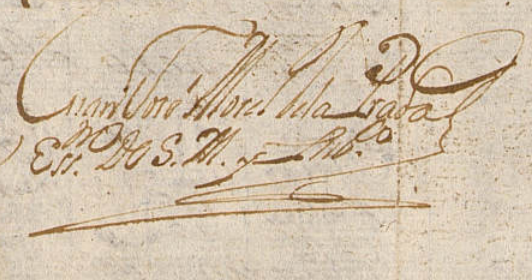 Juan Jose Morel de la Prada
Essno De S. M. y Pubco